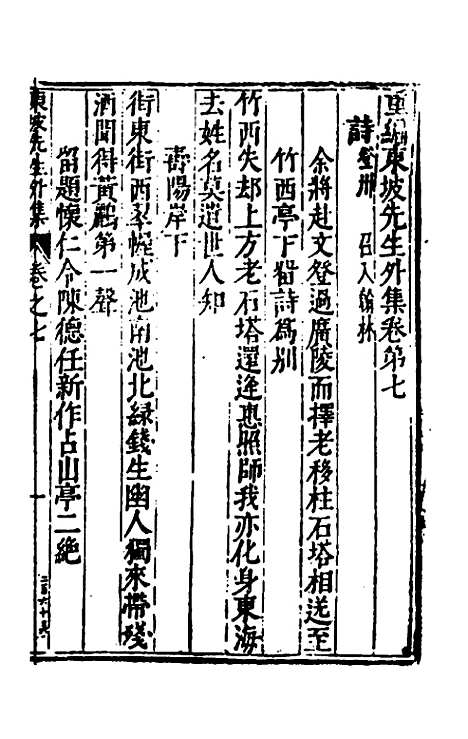 重編東坡先生外集卷第七
詩 登州 召入翰林
余將赴文登過廣陵而擇老移柱石塔相送至
竹西亭下留詩爲別
竹西失却上方老石塔還逢惠照師我亦化身東海
去姓名莫遣世人知
壽陽岸下
街東街西翠幄成池南池北綠錢生幽人獨來帶殘
酒聞得黃鸝第一聲
留題懷仁令陳德任新作占山亭二絶
東坡先生外集 卷之七 一